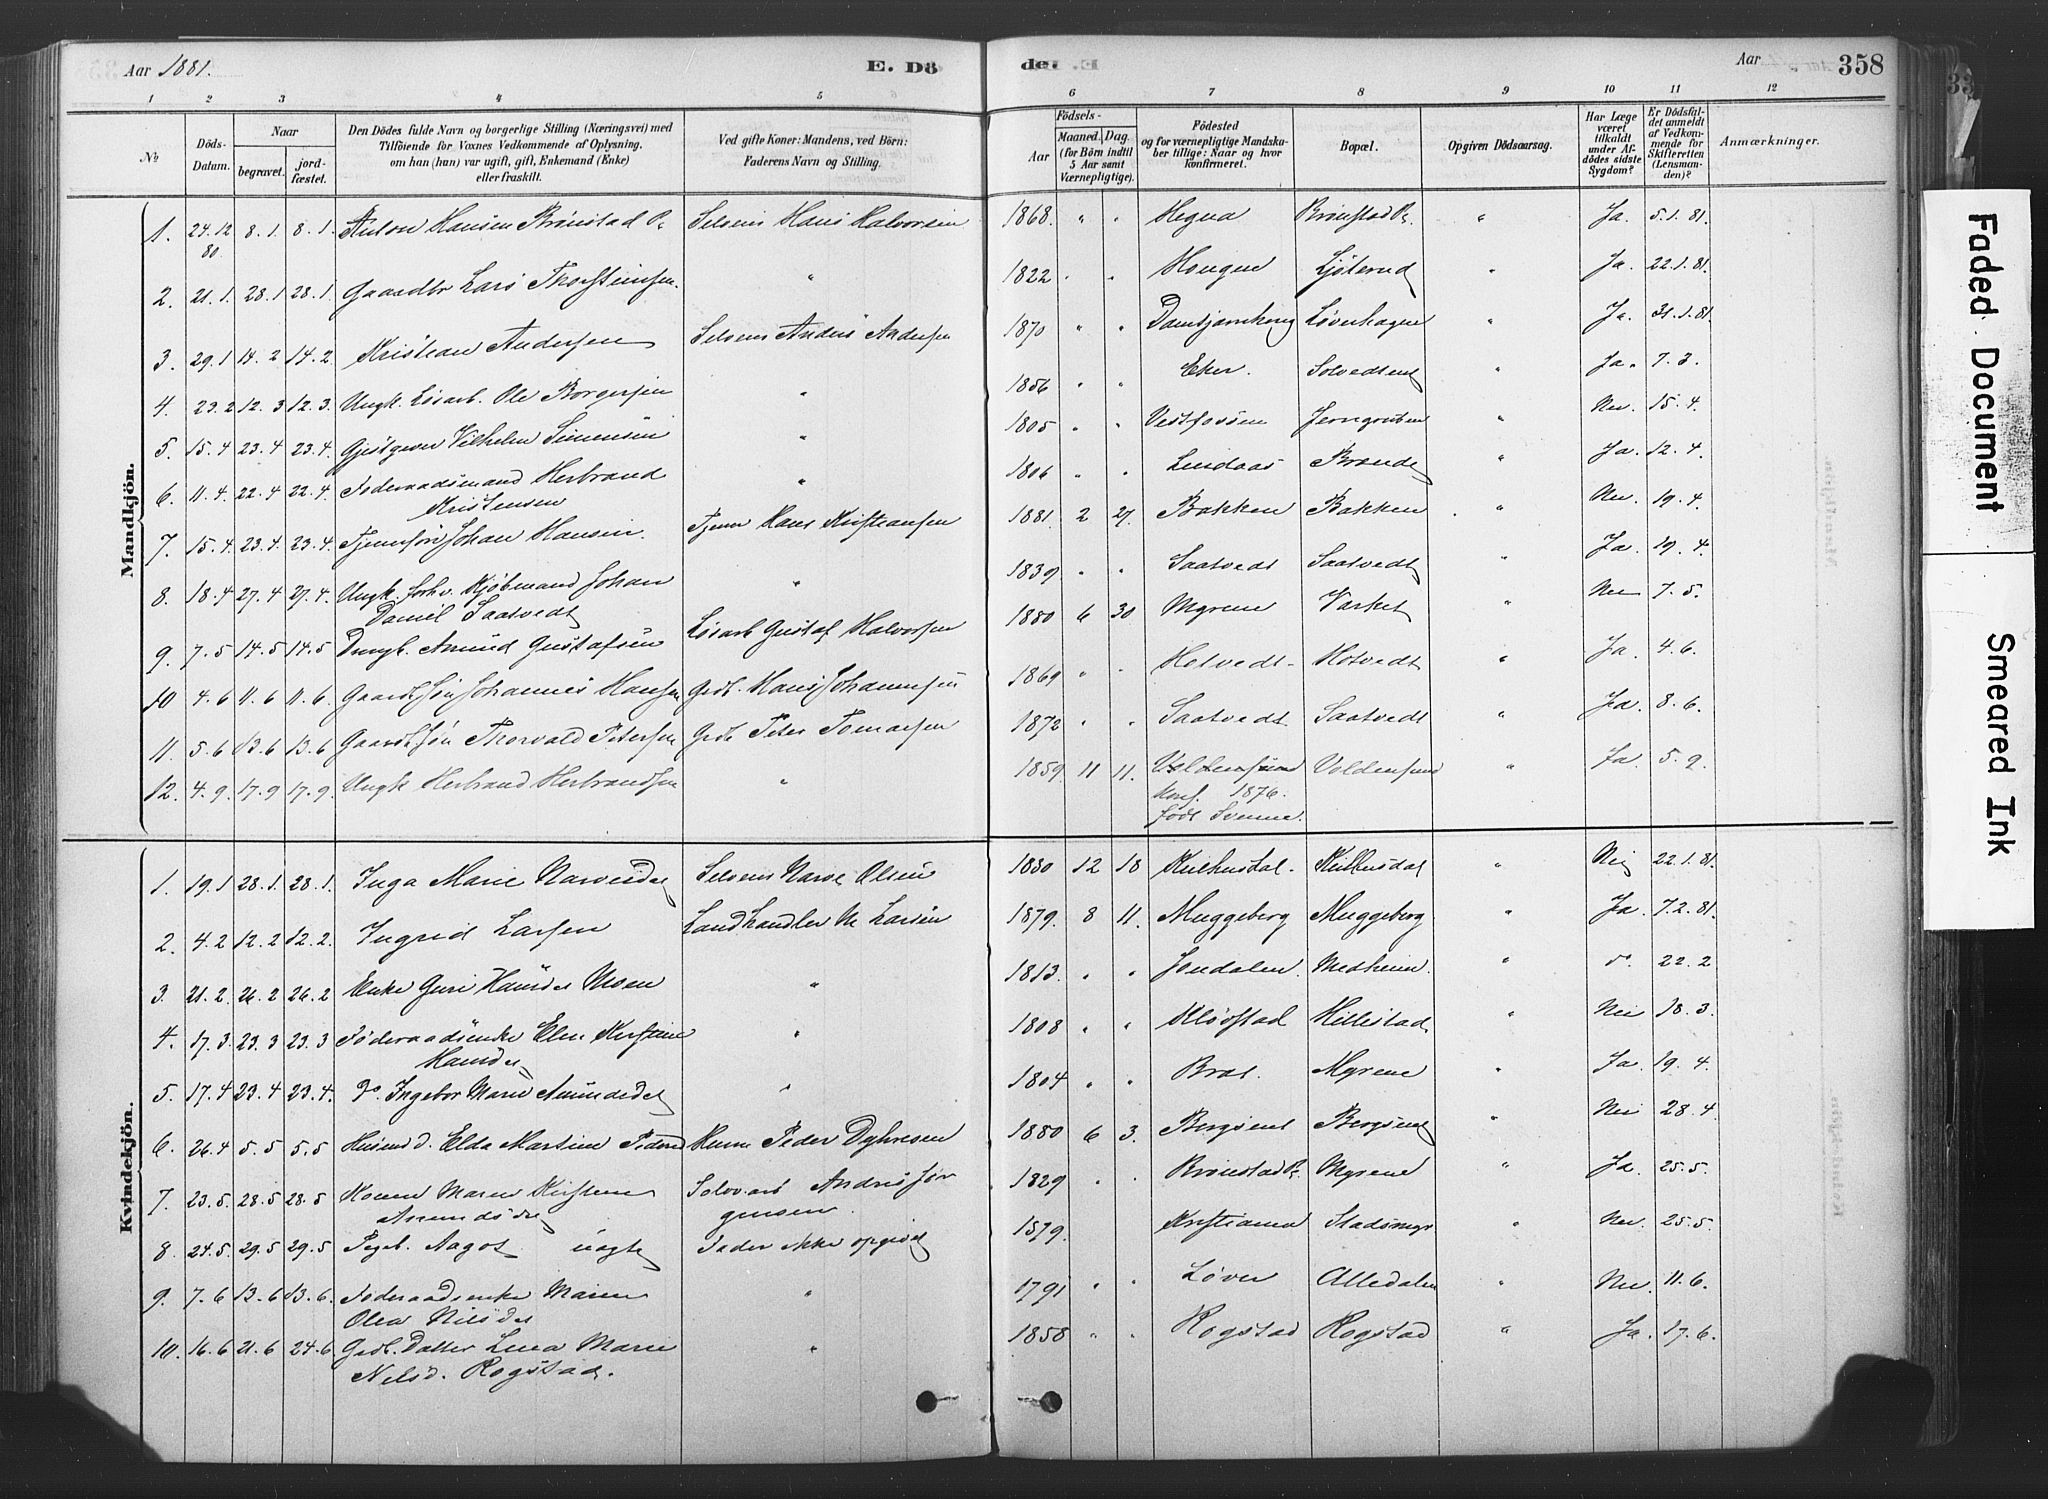 Aar 1881.
E. Dö
de E.
Aar
358
1 2 3 4 5 6 7 8 9 10 11 12
№
Döds-Datum.
Naar
begravet.
jord-fæstet.
Den Dödes fulde Navn og borgerlige Stilling (Næringsvei) med
Tilföiende for Voxnes Vedkommende af Oplysning,
om han (hun) var ugift, gift, Enkemand (Enke)
eller fraskilt.
Ved gifte Koner: Mandens, ved Börn:
Faderens Navn og Stilling.
Födsels-
Aar
Maaned. Dag.
(for Börn indtil
5 Aar samt
Værnepligtige).
Födested
og for værnepligtige Mandska-
ber tillige: Naar og hvor
konfirmeret.
Bopæl.
Opgiven Dödsaarsag.
Har Læge
været
tilkaldt
under Af-
dödes sidste
Sygdom?
Er Dödsfal-
det anmeldt
af Vedkom-
mende for
Skifteretten
(Lensman-
den)?
Anmærkninger.
Mandkjön.
1. 24.12 80 8.1. 8.1. Anton Hansen Brönstad Pl. Selveier Hans Halvorsen 1868. " " Hegna Brönstad Pl. " Ja. 5.1.81.
2. 21.1. 28.1 28.1. Gaardbr Lars Thorstensen. " 1822 " " Hougen Ljöterud " Ja. 22.1.81.
3. 29.1 14.2 14.2. Kristian Andersen Selveier Anders Andersen 1870 " " Løverhagen " Ja. 31.1.81.
4. 23.2 12.3 12.3. Ungk. Løsarb. Ole Borgersen " 1856 " " Eker. Solvedsent " Ja. 7.3.
5. 15.4 23.4 23.4. Gjestgever Vilhelm Simensen " 1805 " " Vestfossen Jerngruben " Nei. 15.4.
6. 11.4. 22.4 22.4 Föderaadsmand Herbrand Kristensen " 1806 " " Lindaas Brænde " Ja. 12.4.
7. 15.4. 23.4. 23.4. Tjenersön Johan Hansen. Tjener Hans Kristiansen 1881 2 27. Bakken Bakken " Nei 19.4.
8. 18.4 27.4 27.4. Ungk. forhv. Kjöbmand Johan Daniel Saatvedt " 1839 " " Saatvedt Saatvedt " Ja 19.4.
9. 7.5 14.5 14.5 Amund Gustafsen Løsarb Gustaf Halvorsen 1880 6 30 Myrene Varket " Nei 7.5.
10 4.6 11.6 11.6 Gaardb.sön Johannes Hansen Grdb. Hans Johannesen 1869 " " Hotvedt Hotvedt " Ja. 4.6.
11. 5.6 13.6 13.6 Gaardb.sön Thorvald Petersen Grdb Peter Tomassen 1872 " " Saatvedt. Saatvedt " Ja. 8.6.
12. 4.9. 17.9 17.9. Ungk Herbrand Herbrandsen " 1859. 11 11. Konf. 1876. född Svenne. " Ja. 5.9.
Kvindekjön.
1. 19.1 28.1. 28.1. Inga Marie Narvesdt Selveier Narve Olsen 1880 12 18 Kulhusdal. Kulhusdal " Nei 22.1.81.
2. 4.2 12.2 12.2. Ingrid Larsen Landhandler M. Larsen 1879. 8 11. Muggeberg Muggeberg " Ja. 7.2.81.
3. 21.2. 26.2 26.2. Enke Guri Hansdt. Moen " 1813. " " Jondalen. Medheim. " do. 22.2
4. 17.3. 23.3 23.3 Föderaadsenke Elen Kirstine Hansdt " 1808 " " Klöfstad Hillestad " Nei 18.3.
5. 17.4 23.4 23.4. Do Ingebor Marie Amundsdt " 1804 " " Myrene " Ja. 19.4.
6. 26.4 5.5 5.5 Husmd d. Elda Martine Pedersd Husm. Peder Dyhresen 1880 6 3. Bergsent Bergsent " Nei 28.4
7. 23.5. 28.5 28.5 Konen Maren Kirstine Amundsdt. Andris Jörgensen. 1829 " " Brönstad Pl. Myrene " Ja. 25.5.
8 24.5. 29.5 29.5 Aagot uægte Fader ikke opgivet 1879. Kristiania " Nei. 25.5.
9. 7.6 13.6 13.6. Föderaadsenke Maren Olea Nilsdt " 1791 " " Löver Alledalen " Nei. 11.6.
10. 16.6 21.6 24.6 Grdb. Datter Lina Marie Nilsd. Rogstad. " 1858 " " Rogstad Rogstad " Ja. 17.6.
Faded Document
Smeared Ink